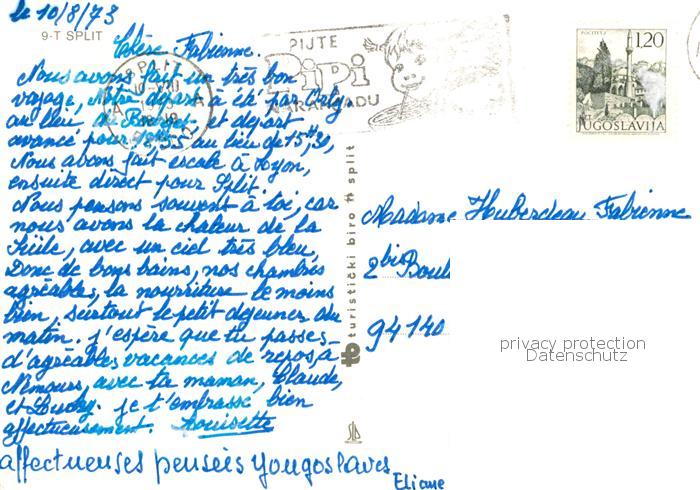 le 10/8/73
9-T SPLIT
Chère Fabienne.
Nous avons fait un très bon
voyage, Notre départ a été par Orly
au lieu du Bourget et départ
avancé pour 12H,55 au lieu de 15H,30,
Nous avons fait escale à Lyon,
ensuite direct pour Split.
Nous pensons souvent à toi, car
nous avons la chaleur de la
Sicile, avec un ciel très bleu,
Donc de bons bains, nos chambres
agréables, la nourriture le moins
bien, surtout le petit déjeuner du
matin. j'espère que tu passes
d'agréables vacances de repos, à
Nemours, avec ta maman, Claude,
et Ducky. je t'embrasse bien
affectueusement. Louisette
affectueuses pensées yougoslaves
Eliane
PIJTE
PiPi
NARANĐADU
SPLIT
turistički biro split
POČITELJ
1,20
JUGOSLAVIJA
Madame Huberdeau Fabienne
2 bis Boul
94140
privacy protection
Datenschutz